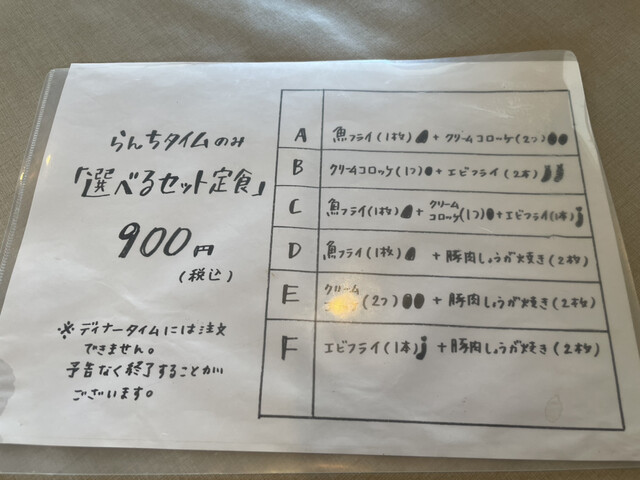 らんちタイムのみ
「選べるセット定食」
900円
(税込)
※ディナータイムには注文
できません。
予告なく終了することが
ございます。
A 魚フライ(1枚) + クリームコロッケ(2つ)
B クリームコロッケ(1つ) + エビフライ(2本)
C 魚フライ(1枚) + クリームコロッケ(1つ) + エビフライ(1本)
D 魚フライ(1枚) + 豚肉しょうが焼き(2枚)
E クリーム (2つ) + 豚肉しょうが焼き(2枚)
F エビフライ(1本) + 豚肉しょうが焼き(2枚)